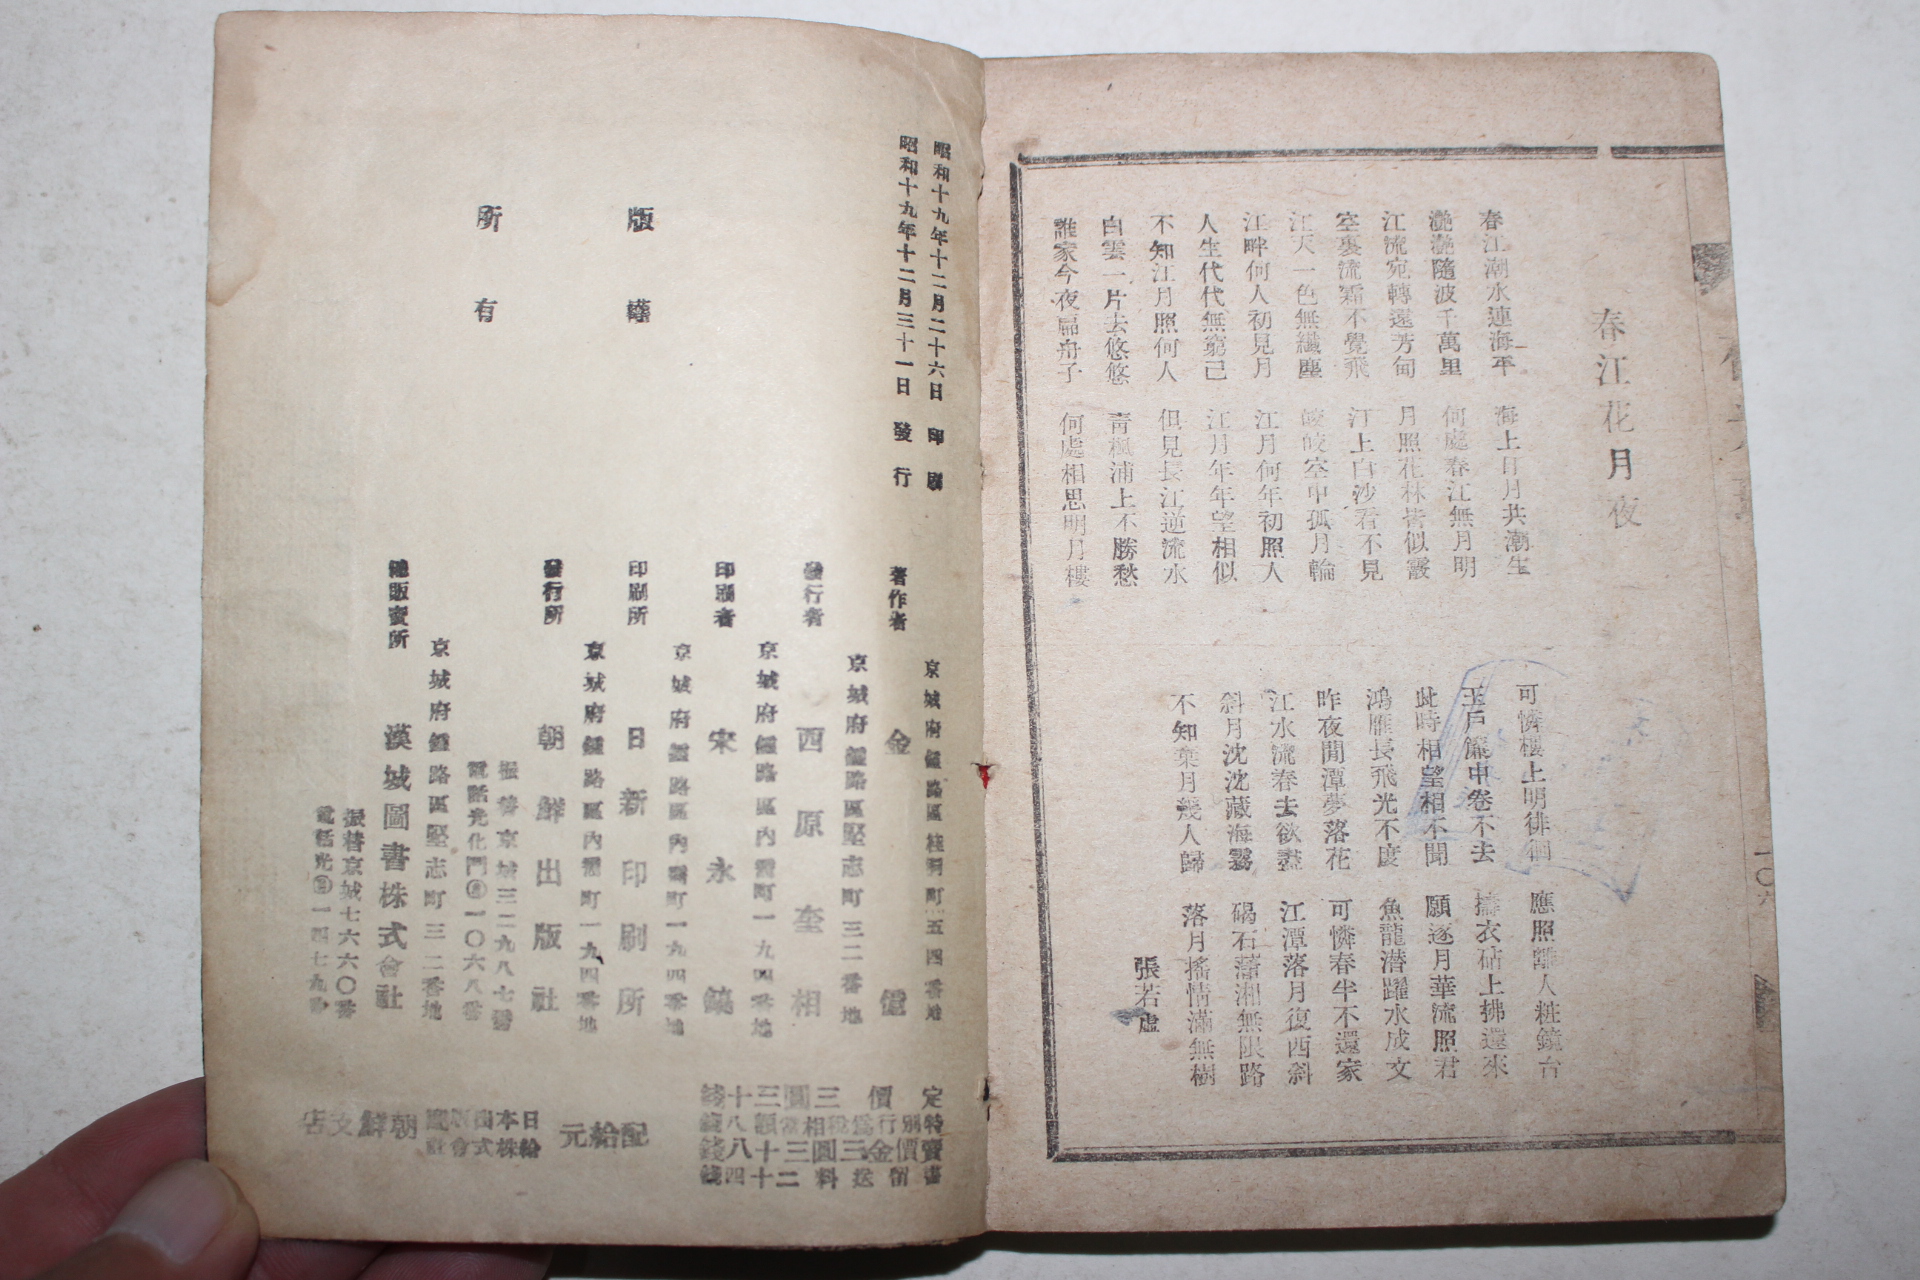 春江花月夜
春江潮水連海平 海上日月共潮生
灔灔隨波千萬里 何處春江無月明
江流宛轉遠芳甸 月照花林皆似霰
空裏流霜不覺飛 汀上白沙看不見
江天一色無纖塵 皎皎空中孤月輪
江畔何人初見月 江月何年初照人
人生代代無窮己 江月年年望相似
不知江月照何人 但見長江逆流水
白雲一片去悠悠 青楓浦上不勝愁
誰家今夜扁舟子 何處相思明月樓
可憐樓上明徘徊 應照離人粧鏡台
玉戶簾中卷不去 擣衣砧上拂還來
此時相望相不聞 願逐月華流照君
鴻雁長飛光不度 魚龍潛躍水成文
昨夜閒潭夢落花 可憐春半不還家
江水流春去欲盡 江潭落月復西斜
斜月沈沈藏海霧 碣石蕭湘無限路
不知葉月幾人歸 落月搖情滿無樹
張若虛
一〇六
昭和十九年十二月二十六日 印刷
昭和十九年十二月三十一日 發行
版權
所有
京城府鍾路區桂町五四番地
著作者 金 億
京城府鍾路區堅志町三二番地
發行者 西原奎相
京城府鍾路區內需町一九四番地
印刷者 宋永鎬
京城府鍾路區內需町一九四番地
印刷所 日新印刷所
京城府鍾路區內需町一九四番地
發行所 朝鮮出版社
振替京城三二九八七番
電話光化門一〇六八番
京城府鍾路區堅志町三二番地
總販賣所 漢城圖書株式會社
振替京城七六六〇番
電話光一四七九番
定價 三圓三十錢
特別行爲稅相當額八錢
賣價金三圓三十八錢
書留送料二十四錢
配給元
日本出版
株式會社
朝鮮支店